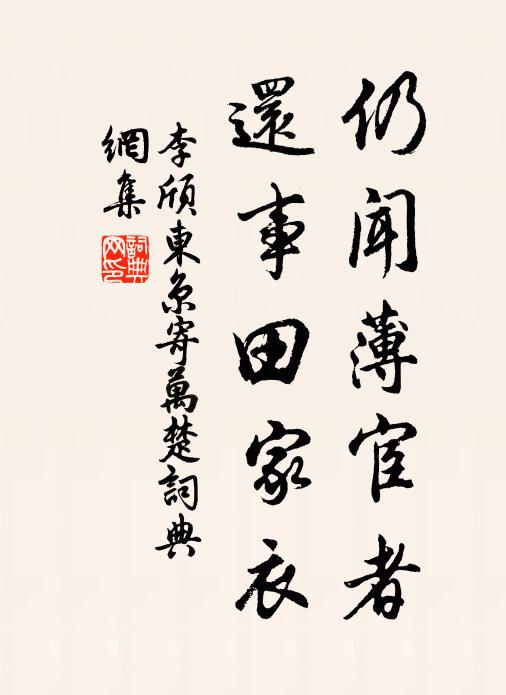 仍聞薄宦者
還事田家衣
李頎東京寄萬楚詞典
網集
詞典
网印